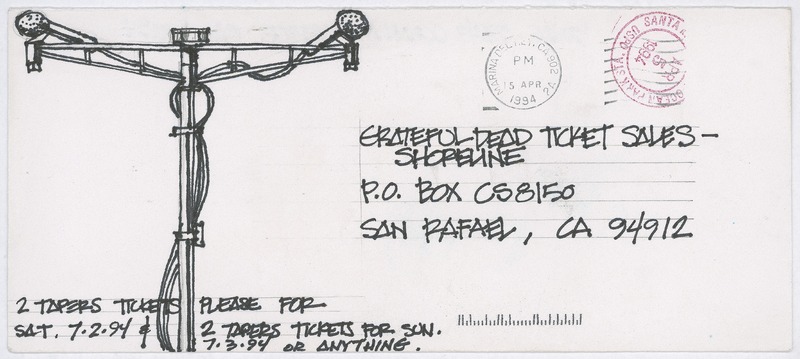 MARINA DEL REY, CA 902
PM
15 APR
1994
USPO SANTA
APR
1994
OCEAN PARK STA.
GRATEFUL DEAD TICKET SALES -
SHORELINE
P.O. BOX CS8150
SAN RAFAEL, CA 94912
2 TAPERS TICKETS PLEASE FOR
SAT. 7.2.94 & 2 TAPERS TICKETS FOR SUN.
7.3.94 OR ANYTHING.